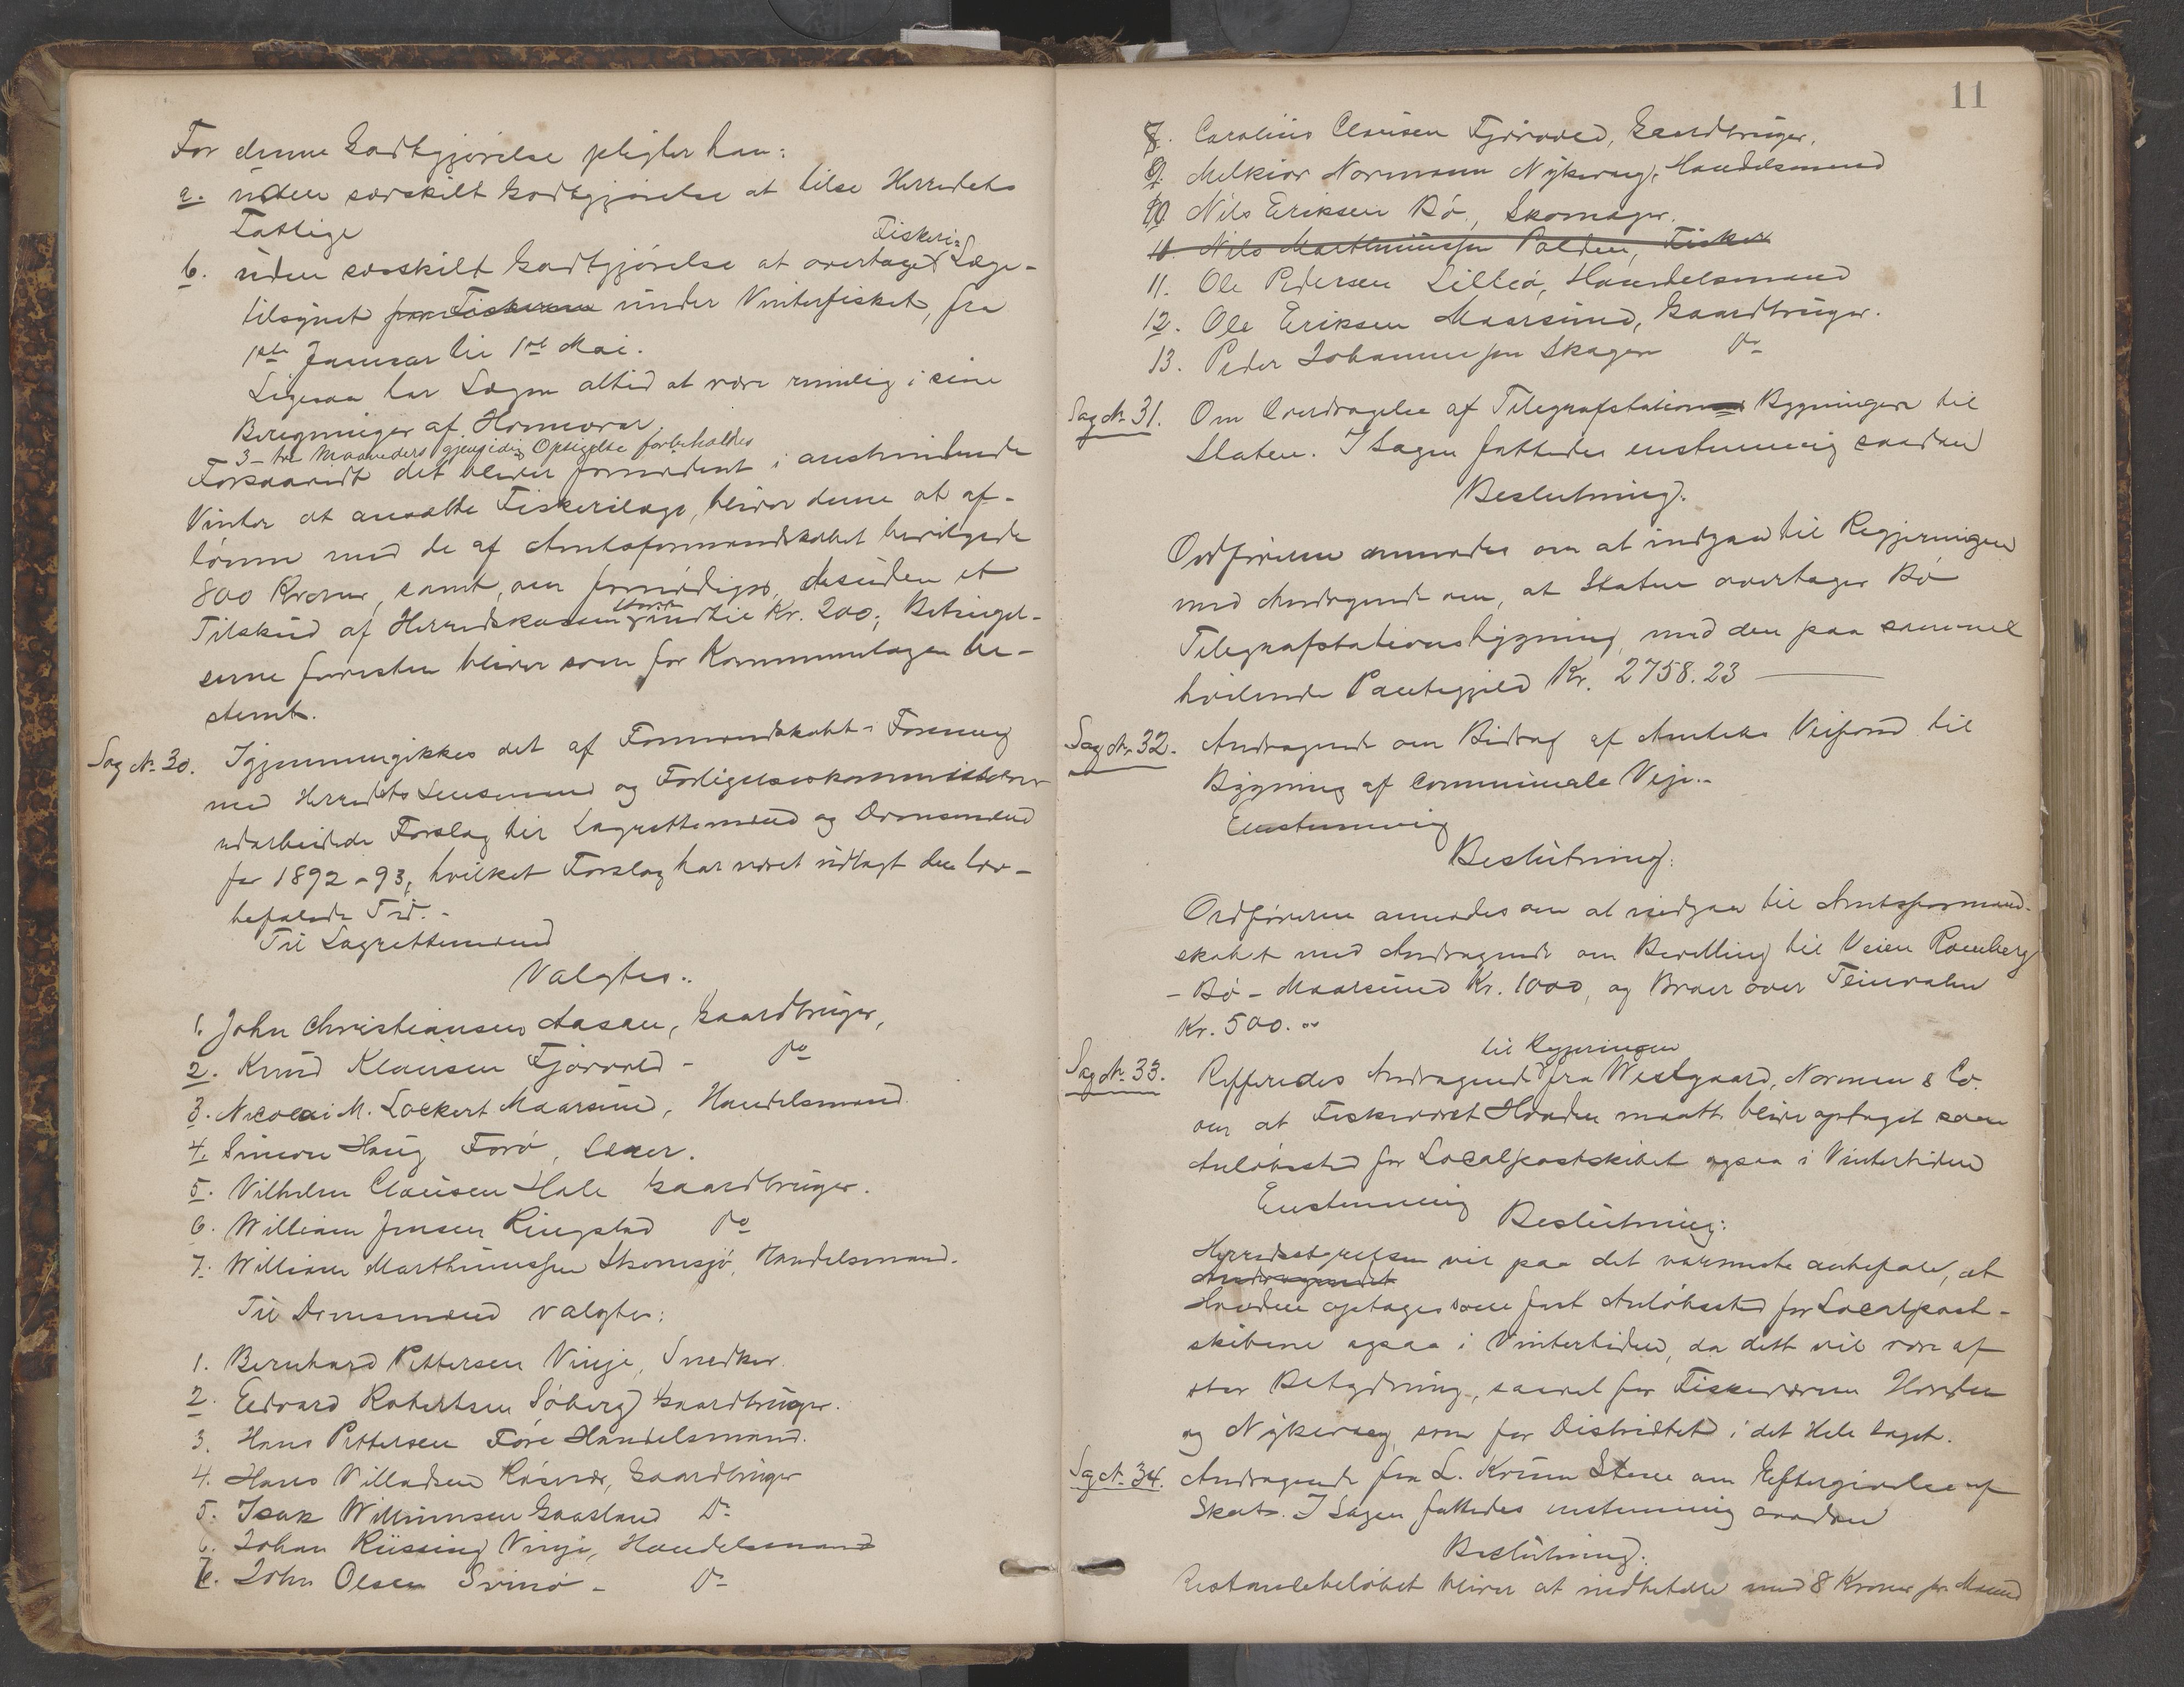 For denne Godtgjørelse pligter han:
a. uden særskilt Godtgjørelse at tilse Herredets
Fattige
Fiskeri-
b. uden særskilt Godtgjørelse at overtage Læge-
tilsynet for Fiskerne under Vinterfisket, fra
1ste Januar til 1ste Mai.
Ligesaa har Lægen altid at være rimelig i sine
Beregninger af Honnorar.
3 - tre Maaneders gjensidig Opsigelse forbeholdes
Forsaavidt det bliver fornødent i anstundende
Vinter at ansætte Fiskerilæge, bliver denne at af-
lønne med de af Amtsformandskabet bevilgede
800 Kroner, samt, om fornødiges, desuden et
Tilskud af Herredskassen indtil Kr. 200; Betingel-
serne forresten bliver som for Kommunelægen be-
stemt.
Sag No 30. Igjennemgikkes det af Formandskabet i Forening
med Herredets Lensmand og Forligelseskommissærer
udarbeidede Forslag til Lagrettemænd og Domsmænd
for 1892-93, hvilket Forslag har været udlagt den lov-
befalede Tid. -
Til Lagrettemænd
Valgtes:
1. John Christiansen Aasan, Gaardbruger,
2. Knud Klausen Fjærvold - Do
3. Nicolai M. Lockert Maarsund, Handelsmand.
4. Simon Haug Forø, Lærer.
5. Vilhelm Clausen Hole Gaardbruger.
6. William Jensen Ringstad Do
7. William Marthinussen Skomsjø, Handelsmand.
Til Domsmænd valgtes:
1. Bernhard Pettersen Vinje, Snedker.
2. Edvard Robertsen Søberg Gaardbruger.
3. Hans Pettersen Føre Handelsmand.
4. Hans Villadsen Røsnær, Gaardbruger
5. Isak Willumsen Gaasland Do
6. Johan Rüssing Vinje, Handelsmand
7. John Olsen Svinø - Do
11
8. Carolius Clausen Fjærvold, Gaardbruger.
9. Melkior Normann Nykvaag, Handelsmand
10 Nils Eriksen Bø, Skomager.
10. Nils Marthinussen Valden, Fisker
11. Ole Pedersen Lilleø, Handelsmand
12. Ole Eriksen Maarsund, Gaardbruger.
13. Peder Johannessen Skagen Do
Sag No 31. Om Overdragelse af Telegrafstations Bygningen til
Staten. I Sagen fattedes enstemmig saadan
Beslutning:
Ordføreren anmodes om at indgaa til Regjeringen
med Andragende om, at Staten overtager Bø
Telegrafstationsbygning, med den paa samme
hvilende Pantegjeld Kr. 2758.23
Sag No 32. Andragende om Bidrag af Amtets Veifond til
Bygning af communale Veje. -
Enstemmig
Beslutning:
Ordføreren anmodes om at indgaa til Amtsformand-
skabet med Andragende om Bevilling til Veien Ramberg
- Bø - Maarsund Kr. 1000, og Broer over
Kr. 500. -
til Regjeringen
Sag No 33. Reffereredes Andragende fra Westgaard, Norman & Co.
om at Fiskeværet Hovden maatte blive optaget som
Anløbssted for Localpostskibet ogsaa i Vintertiden
Enstemmig Beslutning:
Herredsstyrelsen vil paa det varmeste anbefale, at
Andragendet
Hovden optages som fast Anløbssted for Localpost-
skibene ogsaa i Vintertiden, da dette vil være af
stor Betydning, saavel for Fiskeværene Hovden
og Nykvaag, som for Distriktet i det Hele taget.
Sag No 34. Andragende fra L. Krum Steene om Eftergivelse af
Skat. I Sagen fattedes enstemmig saadan
Beslutning:
Restancebeløbet bliver at indbetale med 8 Kroner pr. Maaned